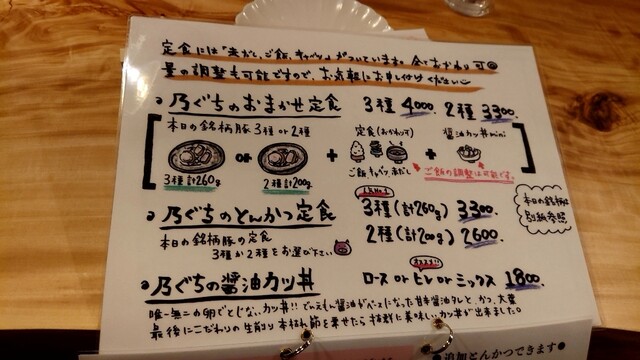 定食には「赤だし、ご飯、キャベツ」がついています。全ておかわり可◎
量の調整も可能ですので、お気軽にお申し付けください
乃ぐちのおまかせ定食 3種 4000. 2種 3300.
本日の銘柄豚 3種 or 2種 定食(おかわり可) 醤油カツ丼mini
or + +
3種計260g 2種計200g ご飯、キャベツ、赤だし ご飯の調整は可能です。
本日の銘柄は
別紙参照
人気No.1
乃ぐちのとんかつ定食 3種(計260g) 3300.
本日の銘柄豚の定食 2種(計200g) 2600.
3種か2種をお選び下さい
オススメ!!
乃ぐちの醤油カツ丼 ロース or ヒレ or ミックス 1800.
唯一無二の卵でとじない、カツ丼!! でんえもん醤油がベースになった甘辛醤油タレと、かつ、大葉
最後にこだわりの生削り本枯れ節を乗せたら 抜群に美味しい、カツ丼が出来ました。
●追加とんかつできます●